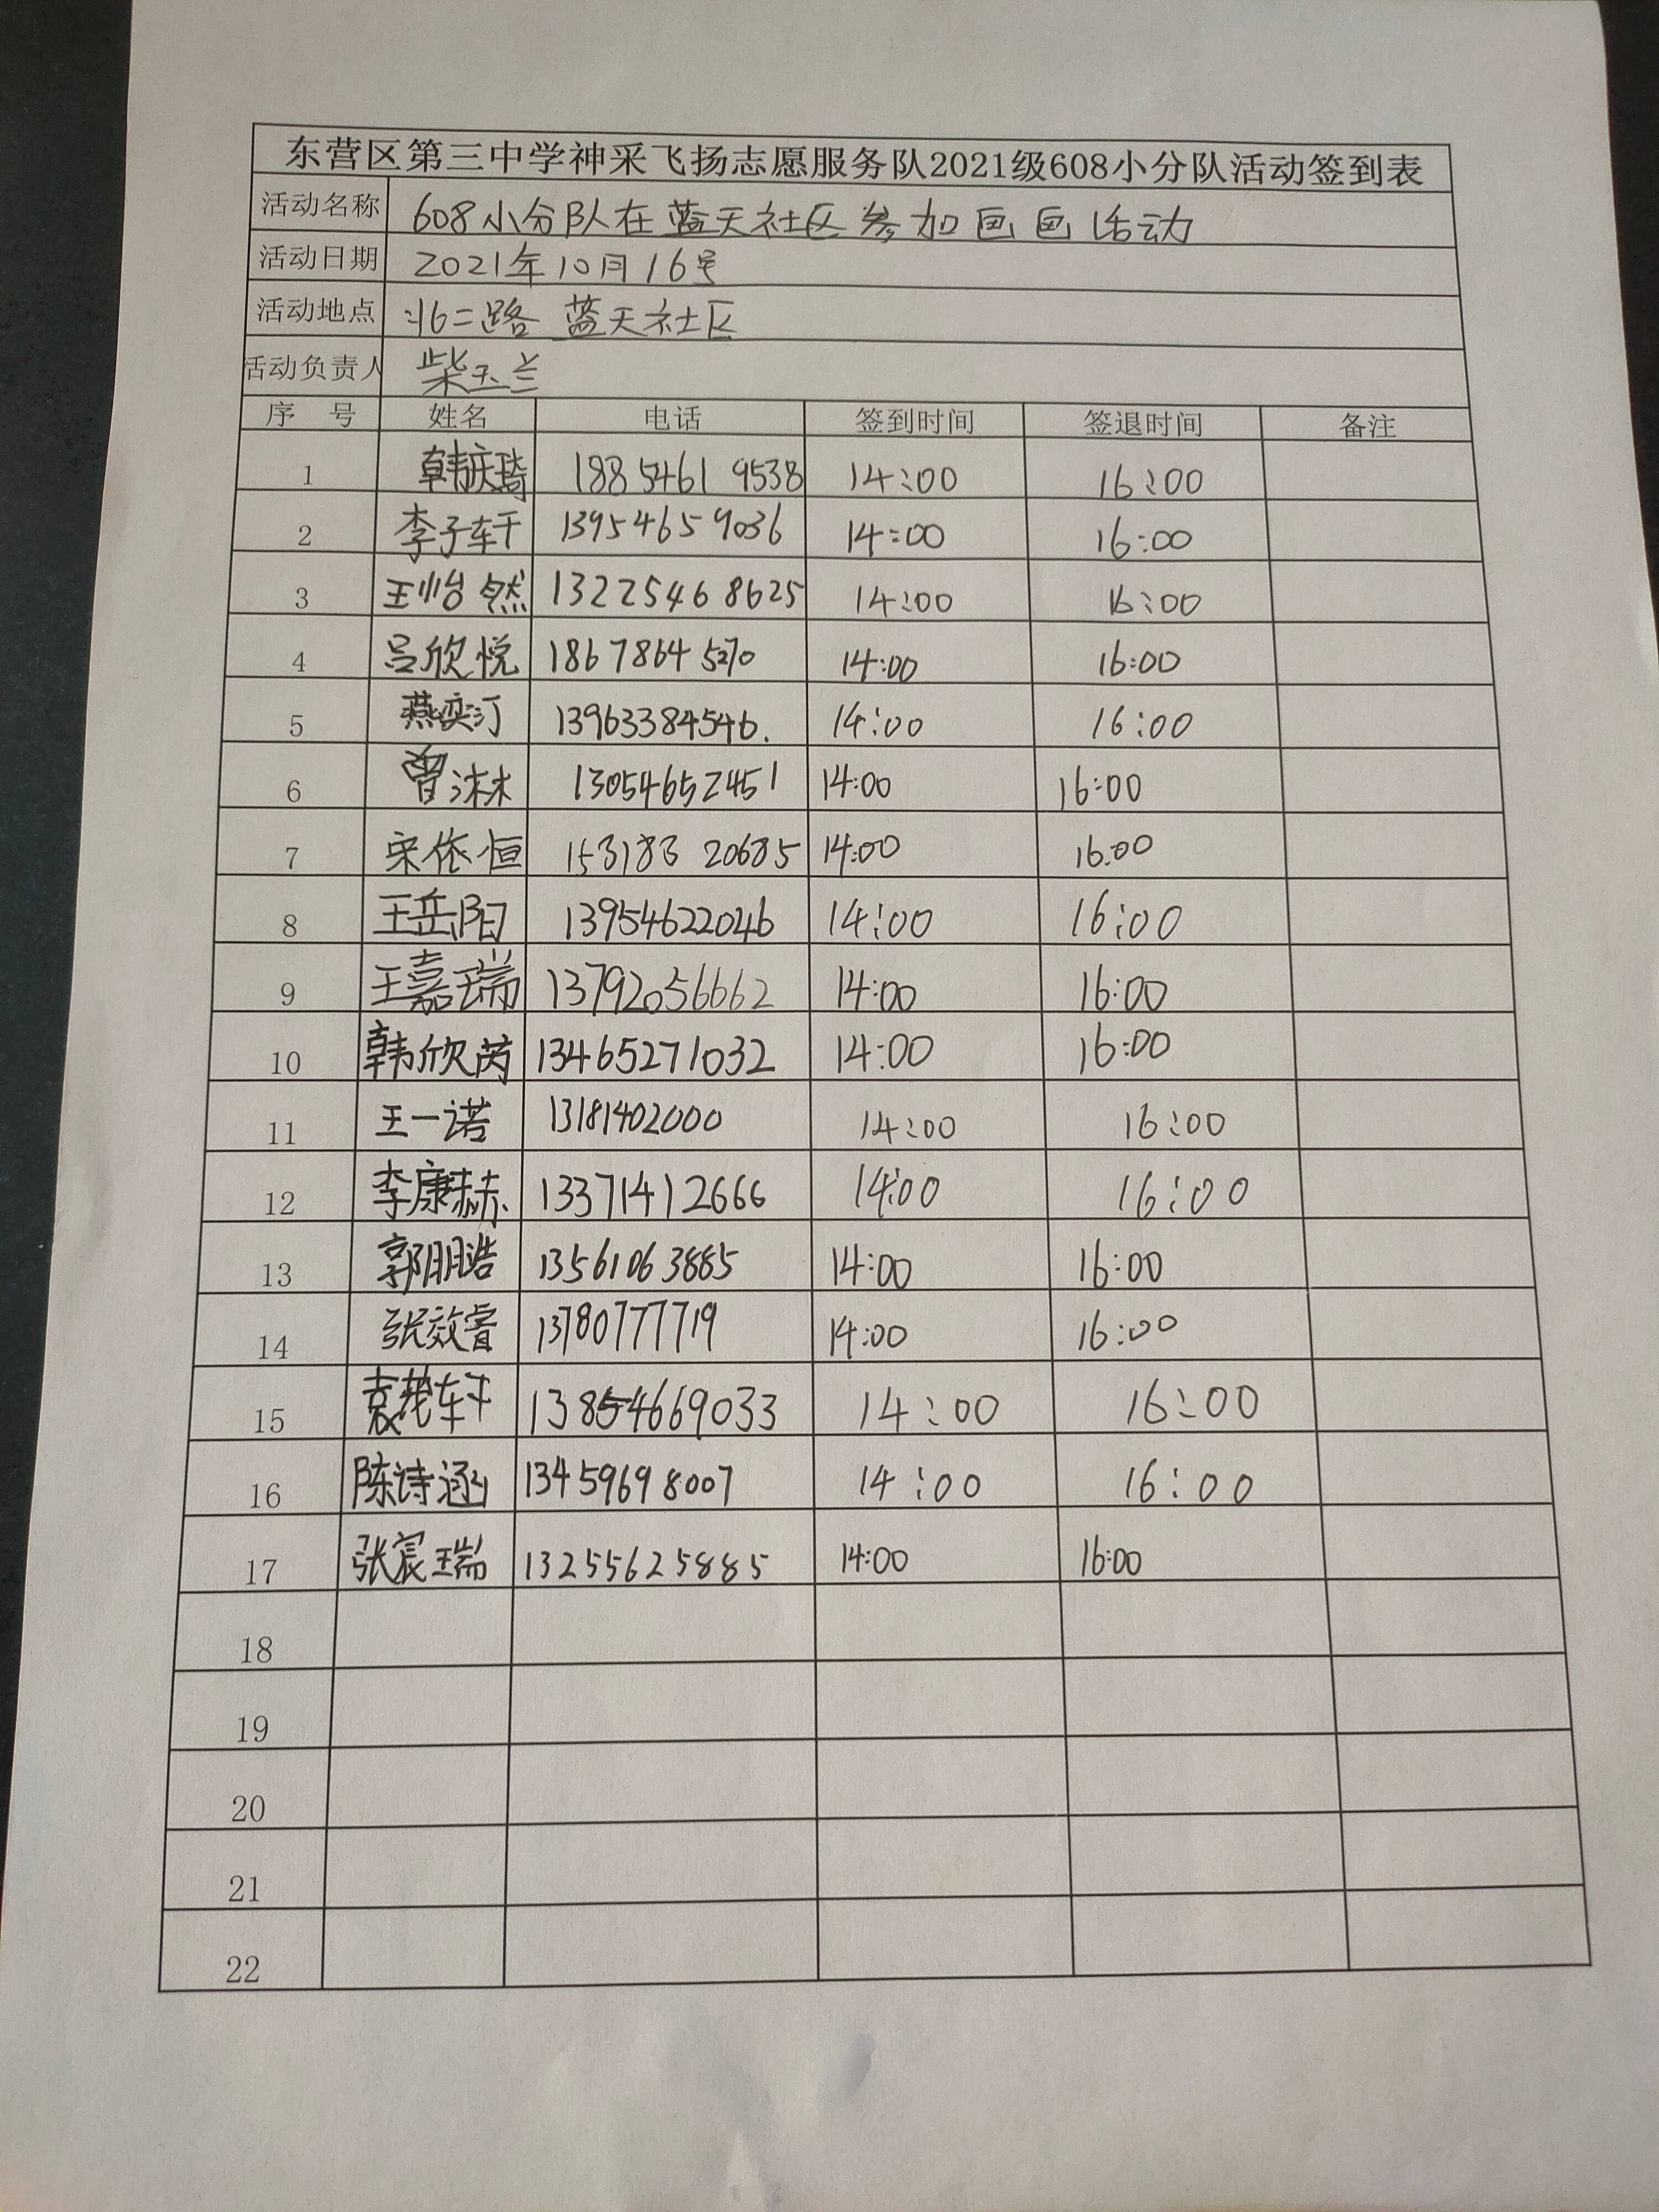 东营区第三中学神采飞扬志愿服务队2021级608小分队活动签到表
活动名称 608小分队在蓝天社区参加画画活动
活动日期 2021年10月16号
活动地点 北二路 蓝天社区
活动负责人 柴玉兰
序 号 姓名 电话 签到时间 签退时间 备注
1 韩庆琦 188 5461 9538 14:00 16:00
2 李子轩 13954659036 14:00 16:00
3 王怡然 13225468625 14:00 16:00
4 吕欣悦 18678645270 14:00 16:00
5 燕奕汀 13963384546. 14:00 16:00
6 曾沐木 13054652451 14:00 16:00
7 宋依恒 153183 20685 14:00 16:00
8 王岳阳 13954622046 14:00 16:00
9 王嘉瑞 13792056662 14:00 16:00
10 韩欣芮 13465271032 14:00 16:00
11 王一诺 13181402000 14:00 16:00
12 李康赫 13371412666 14:00 16:00
13 郭明浩 13561063885 14:00 16:00
14 张效睿 13780777719 14:00 16:00
15 袁 轩 13854669033 14:00 16:00
16 陈诗涵 13459698007 14:00 16:00
17 张宸瑞 13255625885 14:00 16:00
18
19
20
21
22